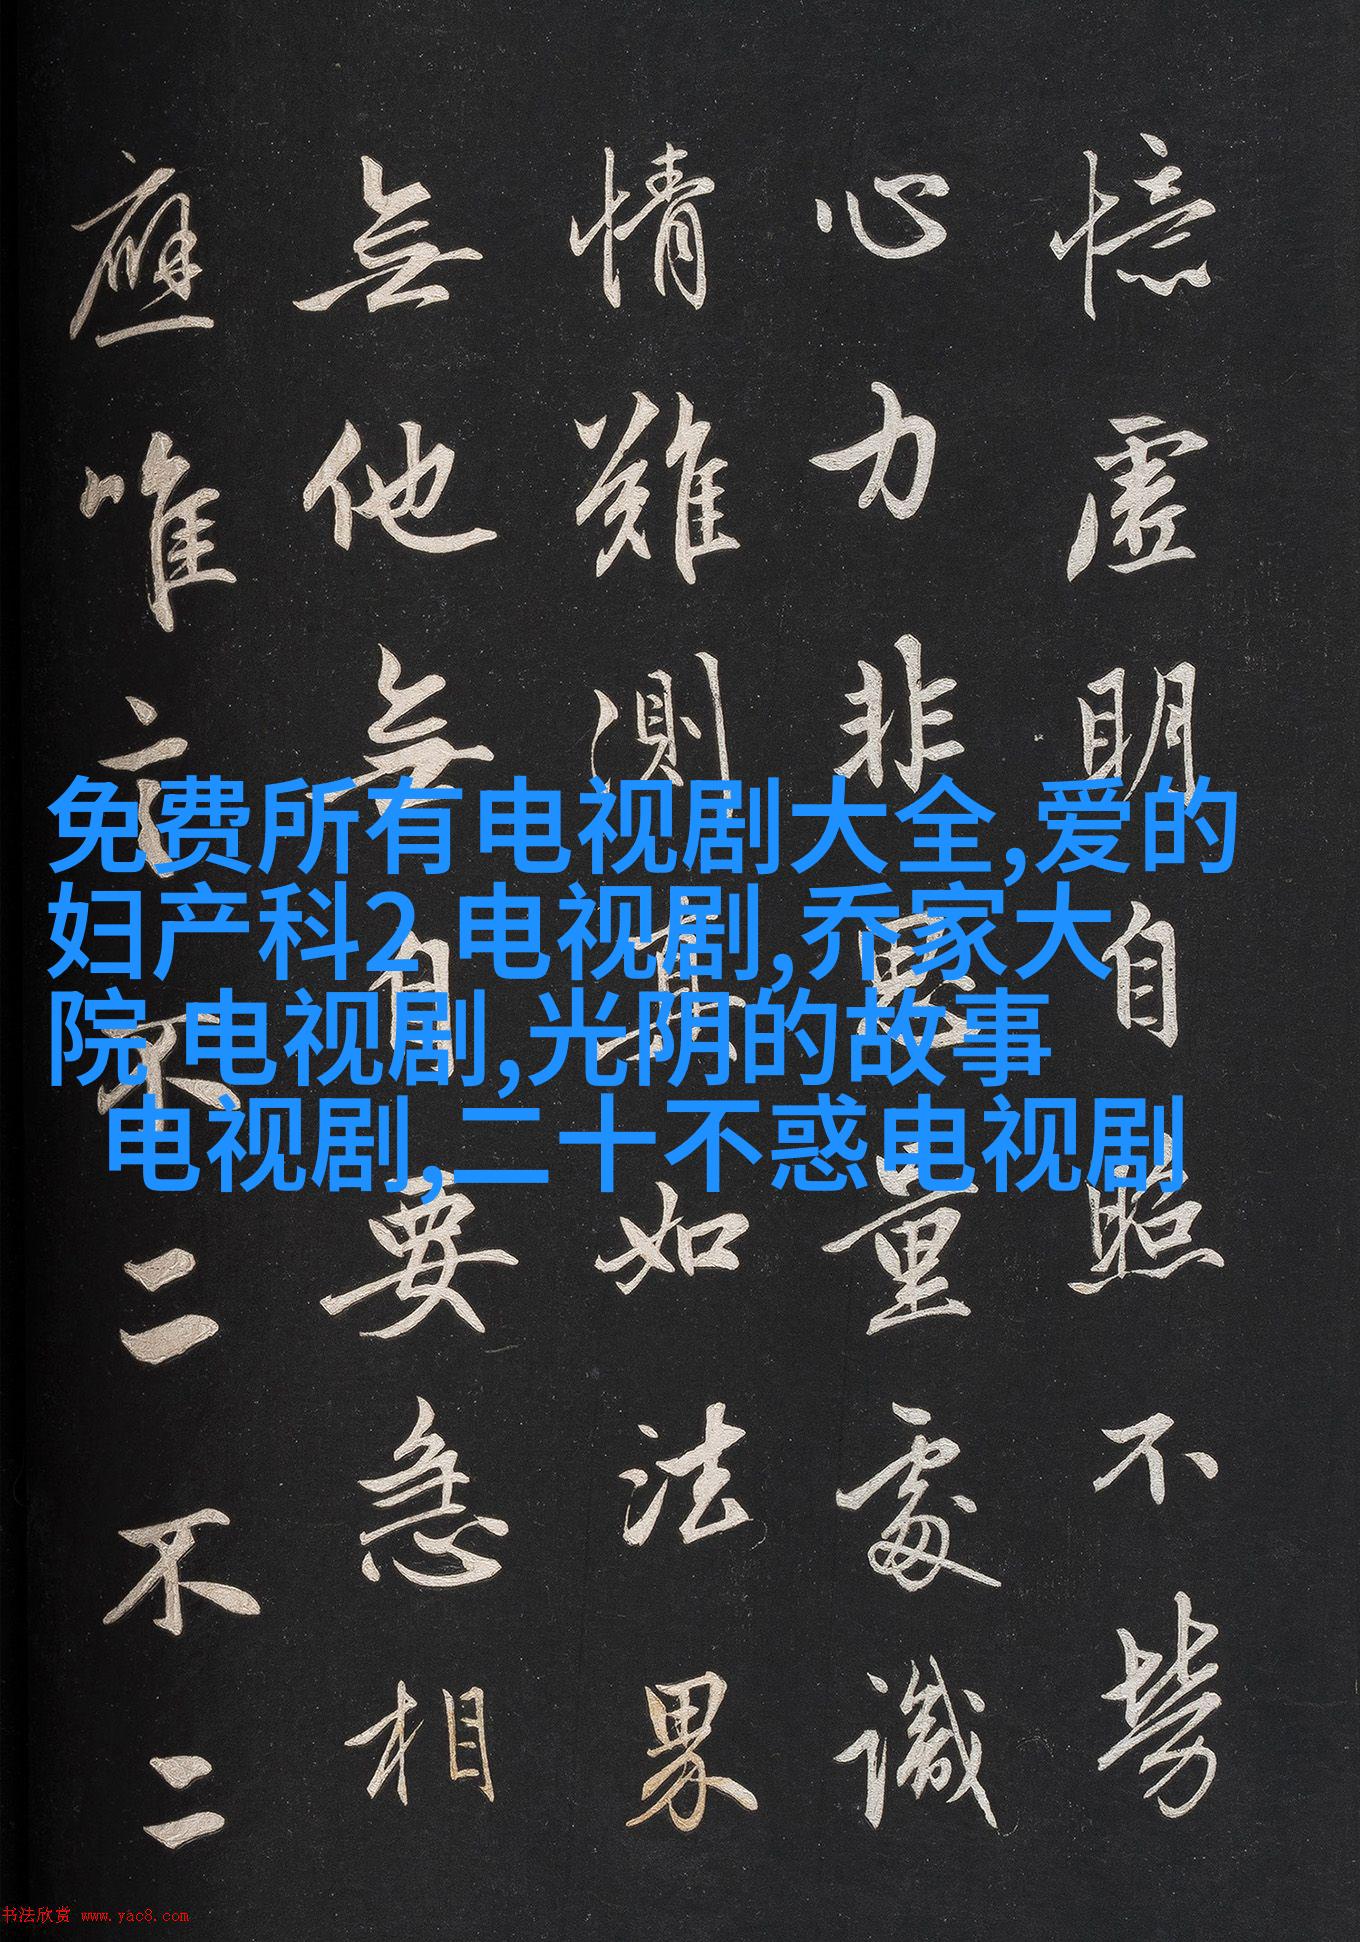 憶虛明自照不勞
心力非思量處識
情難測真如法界
無他無自要急相
應唯言不二不二
免费所有电视剧大全,爱的
妇产科2 电视剧,乔家大
院 电视剧,光阴的故事
电视剧,二十不惑电视剧
书法欣赏 www.yac8.com